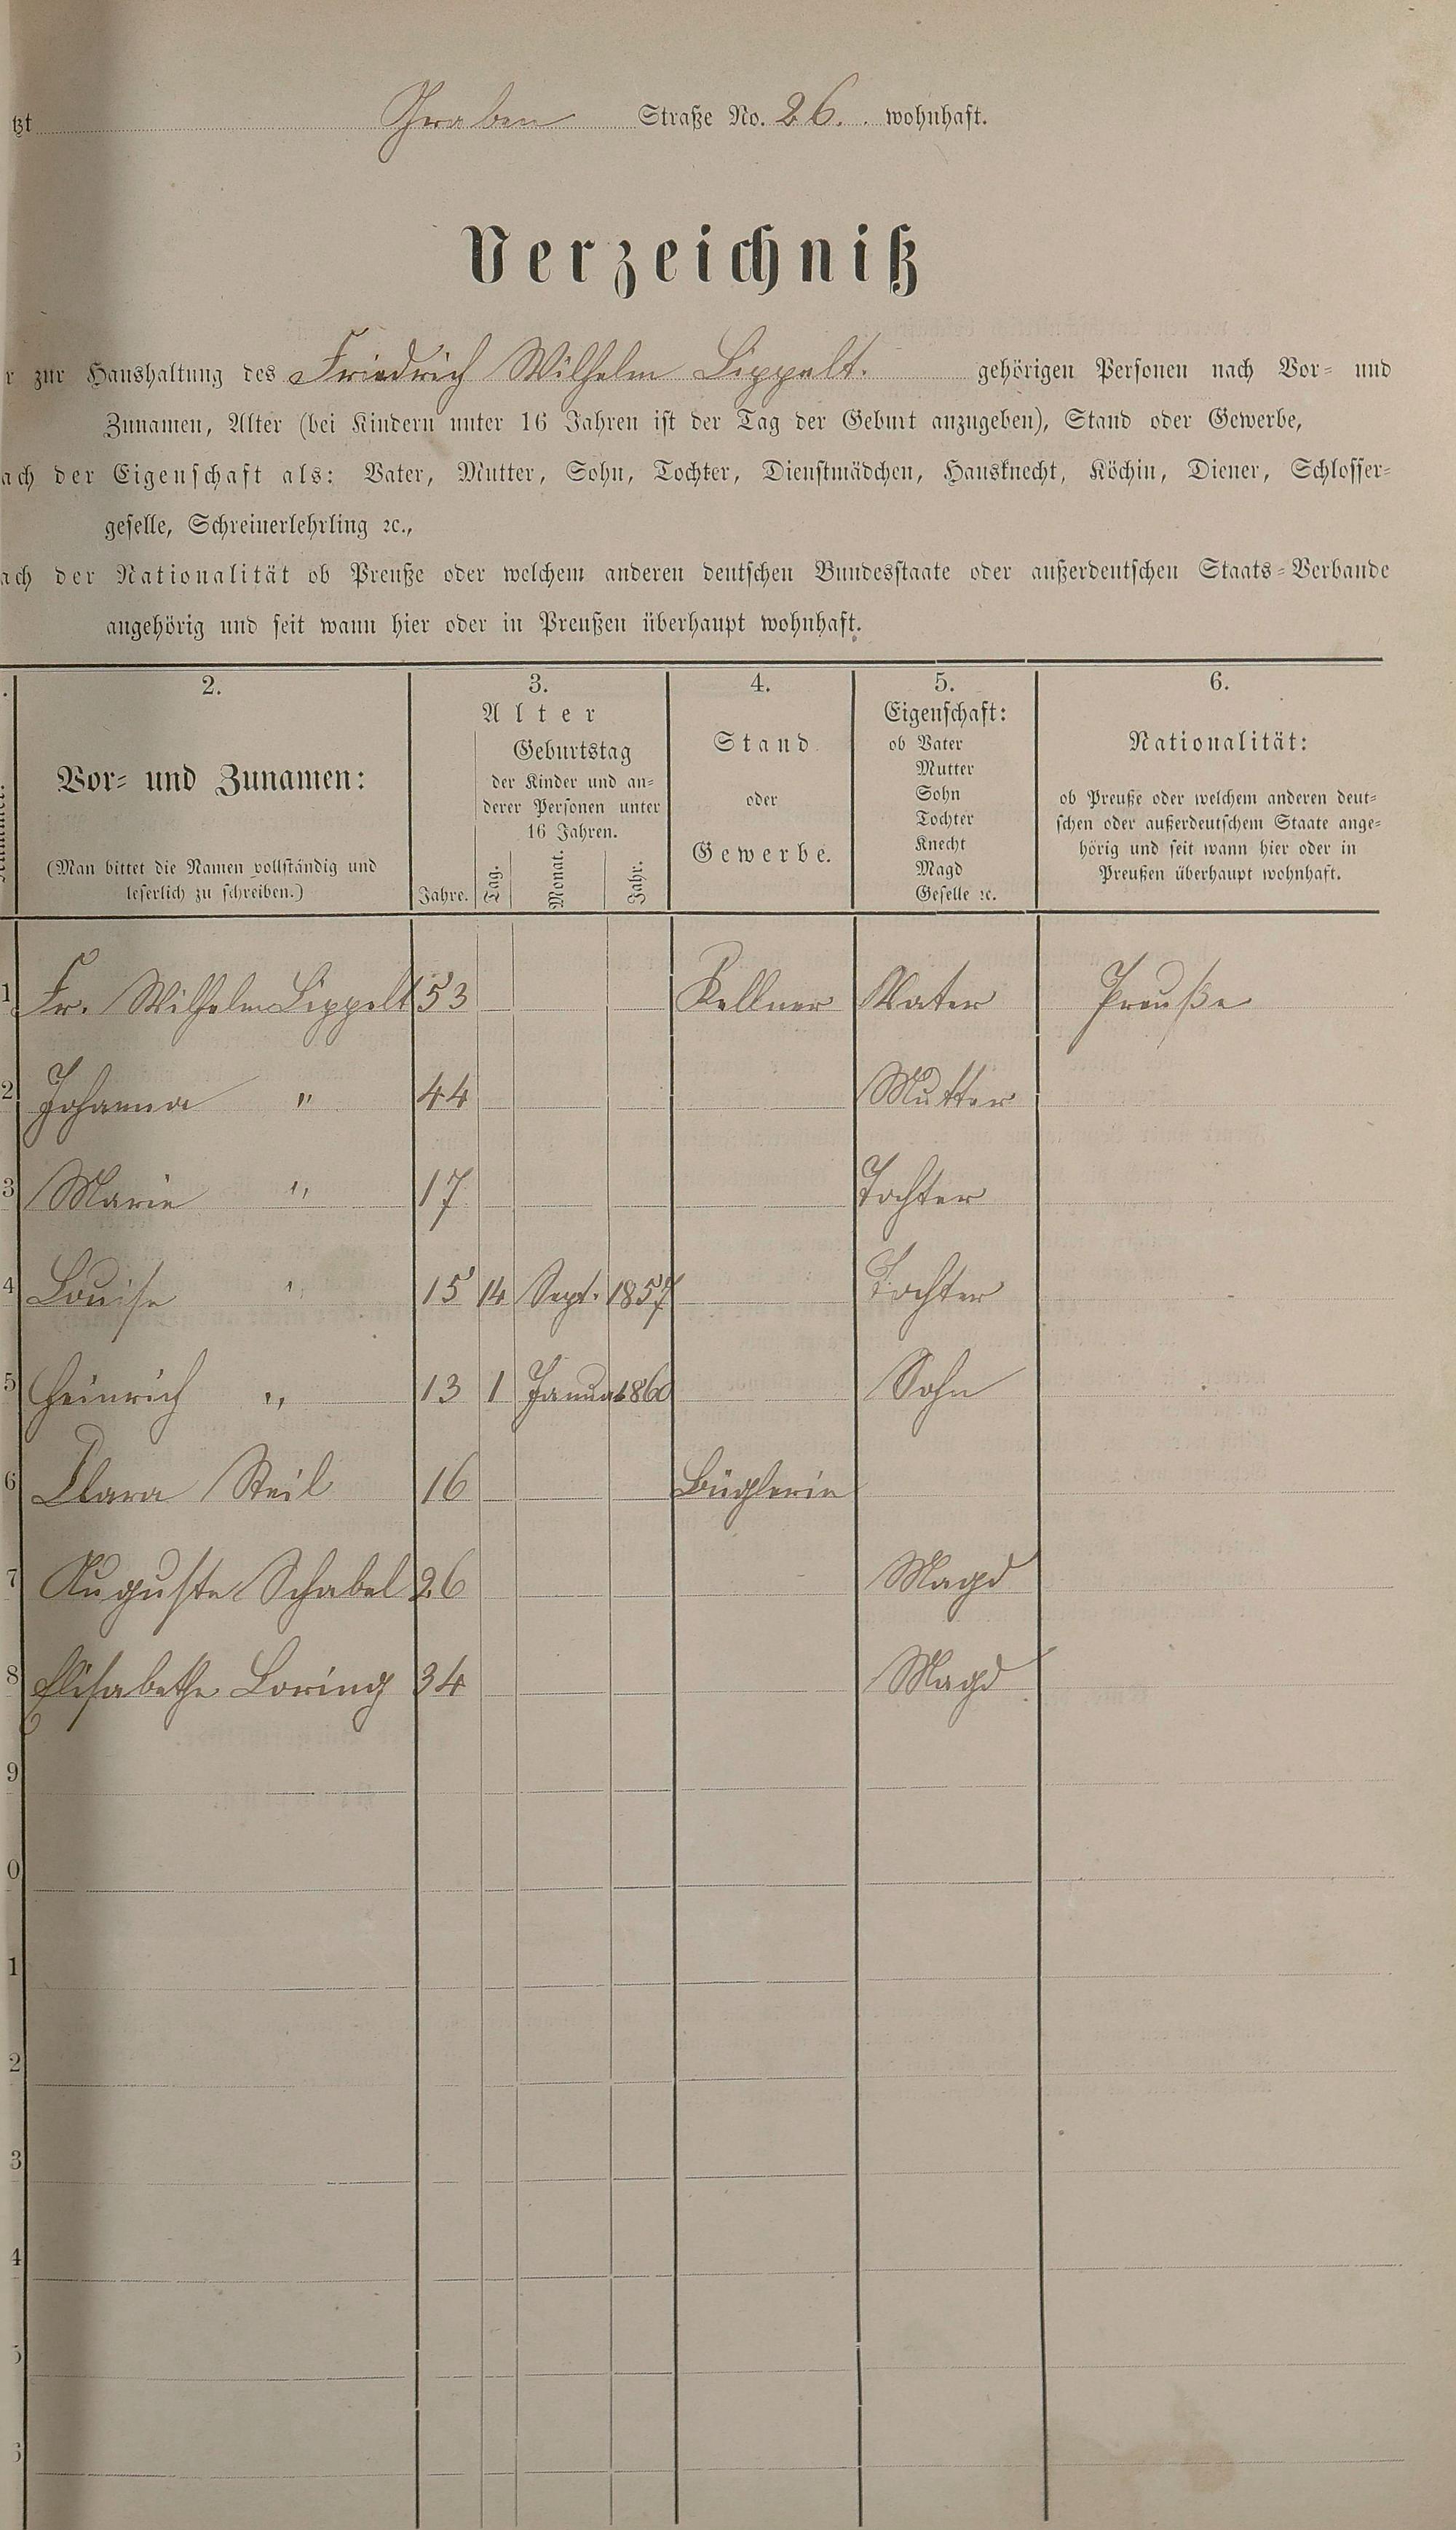 tzt Graben Straße No. 26. wohnhaft.
Verzeichniß
r zur Haushaltung des Friedrich Wilhelm Lippelt. gehörigen Personen nach Vor- und
Zunamen, Alter (bei Kindern unter 16 Jahren ist der Tag der Geburt anzugeben), Stand oder Gewerbe,
ach der Eigenschaft als: Vater, Mutter, Sohn, Tochter, Dienstmädchen, Hausknecht, Köchin, Diener, Schlosser-
geselle, Schreinerlehrling ꝛc.,
ach der Nationalität ob Preuße oder welchem anderen deutschen Bundesstaate oder außerdeutschen Staats-Verbande
angehörig und seit wann hier oder in Preußen überhaupt wohnhaft.
. 2. 3. 4. 5. 6.
Vor- und Zunamen:
(Man bittet die Namen vollständig und
leserlich zu schreiben.)
Alter
Geburtstag
der Kinder und an-
derer Personen unter
16 Jahren.
Jahre. Tag. Monat. Jahr.
Stand
oder
Gewerbe.
Eigenschaft:
ob Vater
Mutter
Sohn
Tochter
Knecht
Magd
Geselle ꝛc.
Nationalität:
ob Preuße oder welchem anderen deut-
schen oder außerdeutschem Staate ange-
hörig und seit wann hier oder in
Preußen überhaupt wohnhaft.
1 Fr. Wilhelm Lippelt 53 Kellner Vater Preuße
2 Johanna " 44 Mutter
3 Marie " 17 Tochter
4 Louise " 15 14 Sept. 1857 Tochter
5 Heinrich " 13 1 Januar 1860 Sohn
6 Clara Steil 16 Büglerin
7 Auguste Schabel 26 Magd
8 Elisabethe Loring 34 Magd
9
0
1
2
3
4
5
6